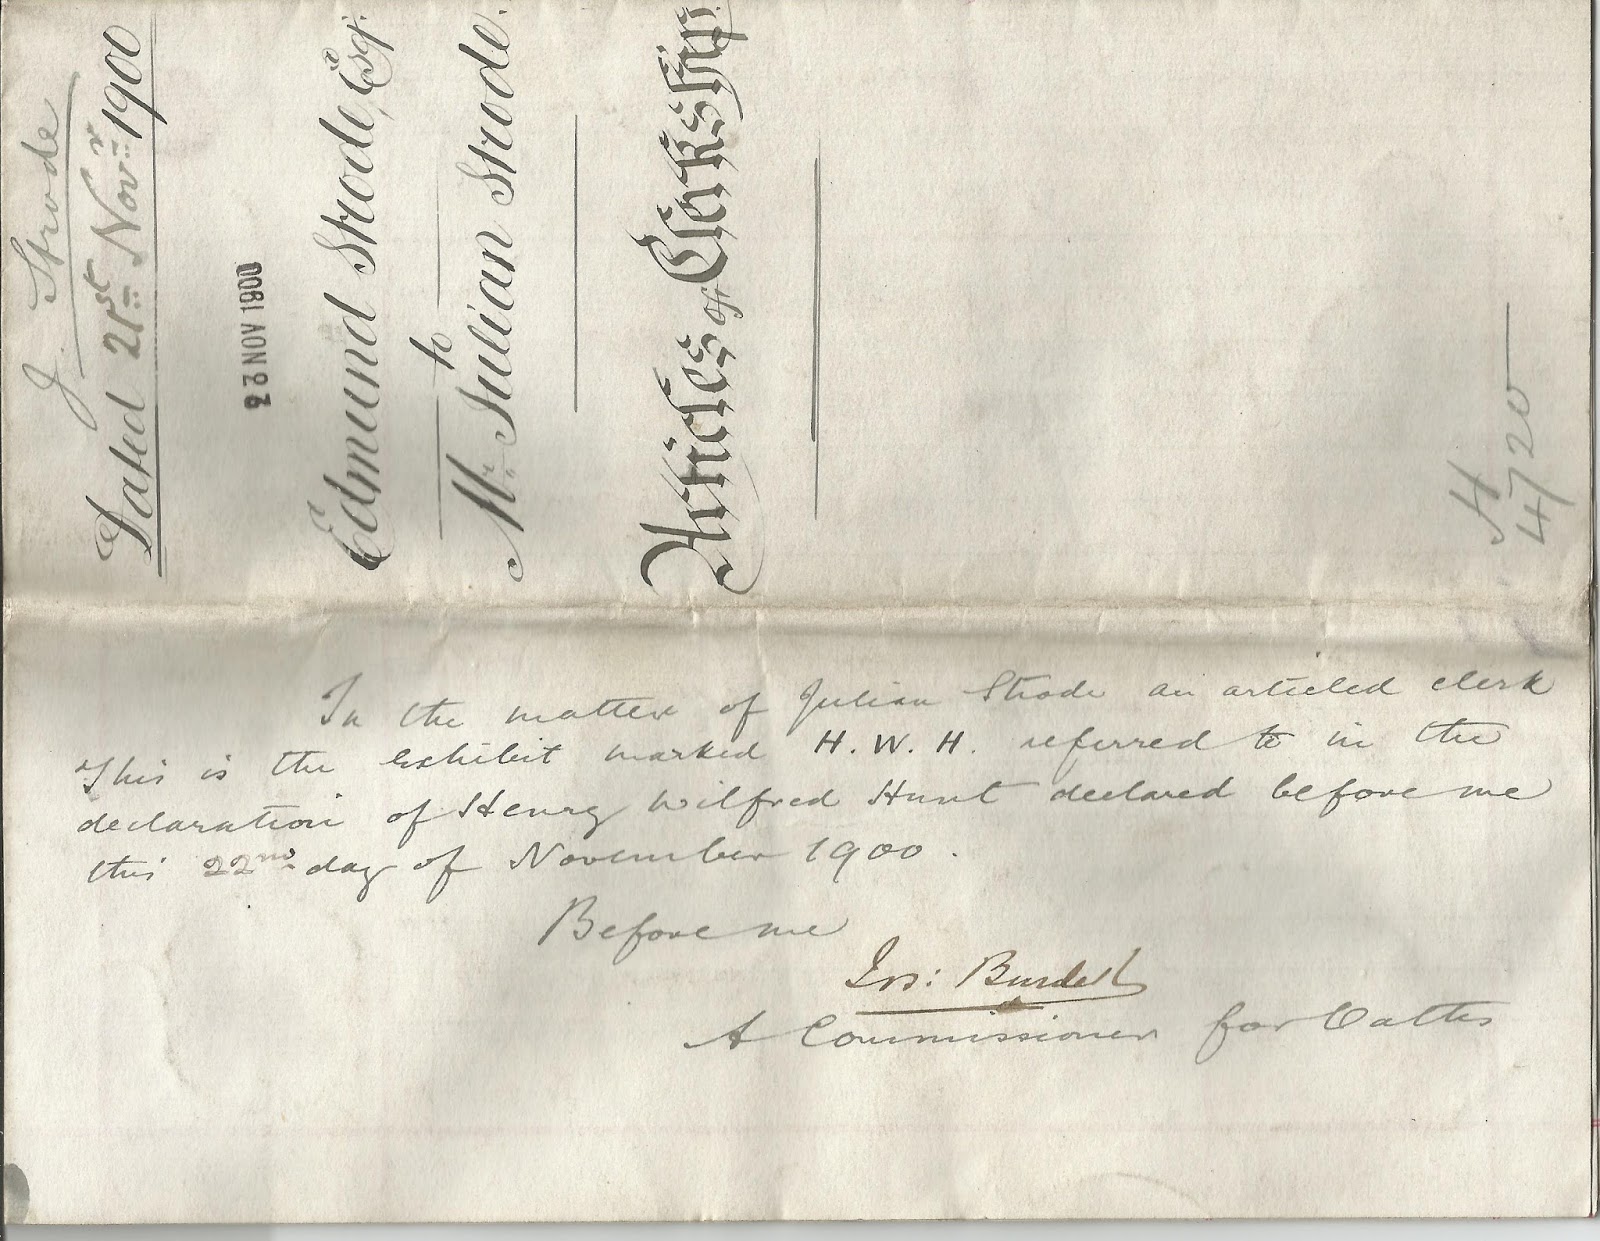 J. Strode
Dated 21st Novr 1900
23 NOV 1900
Edmund Strode, Esq.
to
Mr. Julian Strode.
Articles of Clerkship.
H
4720
In the matter of Julian Strode an articled clerk
This is the exhibit marked H. W. H. referred to in the
declaration of Henry Wilfred Hunt declared before me
this 22nd day of November 1900.
Before me
Jos: Burdett
A Commissioner for Oaths